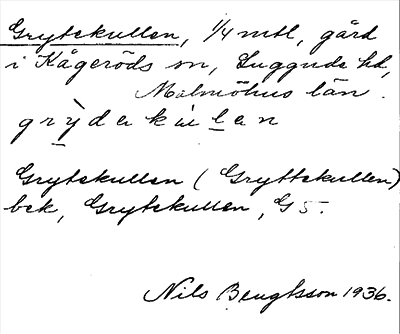 Grytekullen, 1/4 mtl, gård
i Kågeröds sn, Luggude hd,
Malmöhus län.
Grytekullen (Gryttekullen)
bek, Grytekullen, G 5.
Nils Bengtsson 1936.